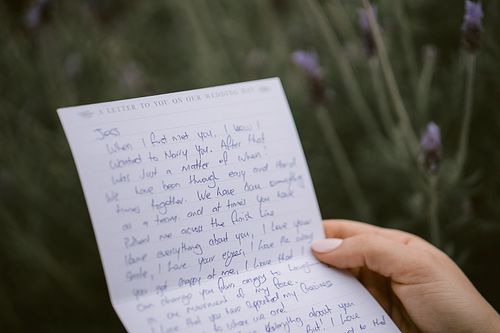 A LETTER TO YOU ON OUR WEDDING DAY
Joss
When I first met you, I knew I
wanted to Marry You. After that
was Just a matter of when!
We have been through easy and Hard
times together. We have done everything
as a team, and at times you have
Pulled me across the finish line
I love everything about you, I love your
Smile, I love your eyes, I love the way
you get angry at me, I love that I
can change you from angry to laughing
in one movement of my face.
I love that you have supported my choices
to where we are!
everything about you
But I love
to